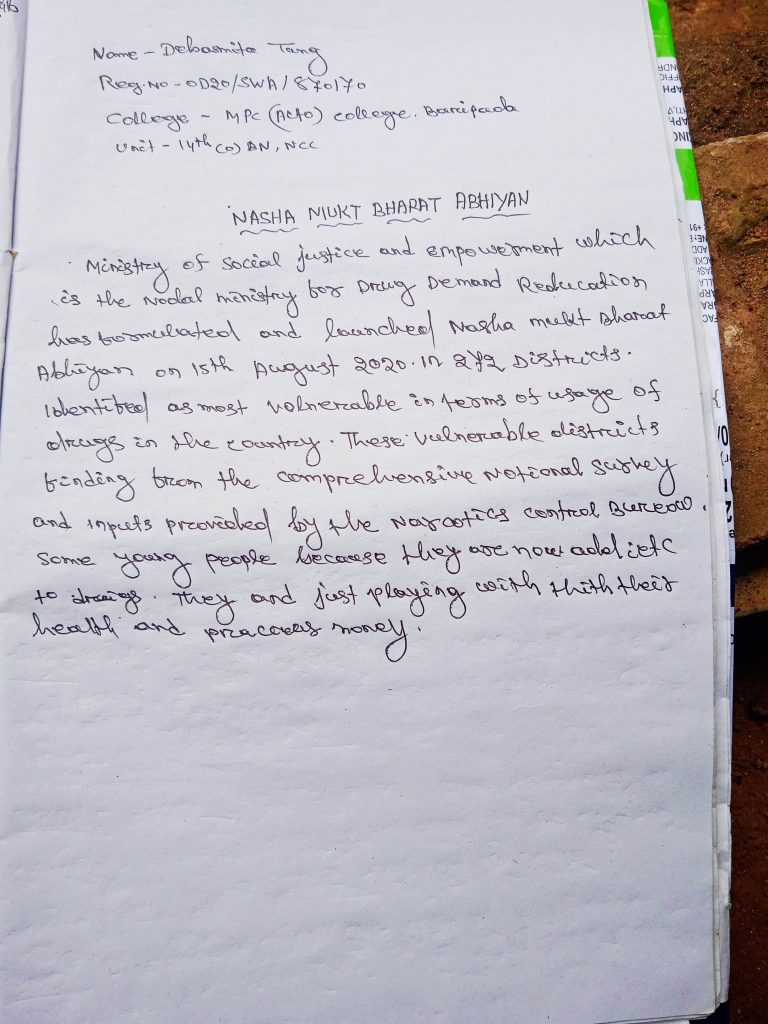 Name - Debasmita Tang
Reg.No - OD20/SWA/870170
College - MPC (Auto) college, Baripada
Unit - 14th (O) BN, NCC
NASHA MUKT BHARAT ABHIYAN
Ministry of social justice and empowerment which
is the Nodal ministry for Drug Demand Reducation
has formulated and launched Nasha mukt Bharat
Abhiyan on 15th August 2020. in 272 Districts.
Identified as most volnerable in terms of usage of
drugs in the country. These vulnerable districts
finding from the comprehensive Notional survey
and inputs provided by the Narcotics control Bureau.
Some young people because they are now addict
to drugs. They and just playing with thith their
health and money.